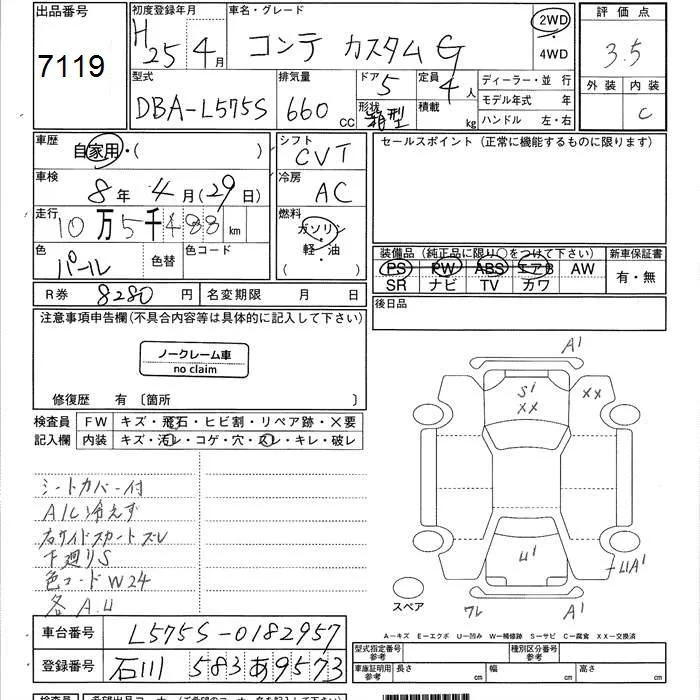 出品番号
7119
初度登録年月
H25年4月
車名・グレード
コンテ カスタム G
2WD
・
4WD
評価点
3.5
外装 内装
C
型式
DBA-L575S
排気量
660 CC
ドア
5
形状
箱型
定員
4人
積載
kg
ディーラー・並行
モデル年式 年
ハンドル 左・右
車歴
自家用・( )
シフト
CVT
セールスポイント (正常に機能するものに限ります)
車検
8年4月(29日)
冷房
AC
走行
10万5千488km
燃料
ガソリン
・
軽・油
( )
色
パール
色替
色コード
装備品 (純正品に限り○をつけて下さい)
PS PW ABS エアB AW
SR ナビ TV カワ
新車保証書
有・無
R券 8280円
名変期限 月 日
後日品
注意事項申告欄(不具合内容等は具体的に記入して下さい)
ノークレーム車
no claim
修復歴 有 〔箇所 〕
検査員
記入欄
FW キズ・飛石・ヒビ割・リペア跡・×要
内装 キズ・汚レ・コゲ・穴・スレ・キレ・破レ
シートカバー付
A/C冷えず
右サイドスカートズレ
下廻りS
色コードW24
各A.U
A1
S1
XX
XX
U1
UA1
スペア
ワレ
A1
A−キズ E−エクボ U−凹み W−補修跡 S−サビ C−腐食 XX−交換済
車台番号
L575S-0182957
登録番号
石川 583 あ 9573
型式指定番号
参考
種別区分番号
参考
車庫証明用
参考
長さ cm
幅 cm
高さ cm